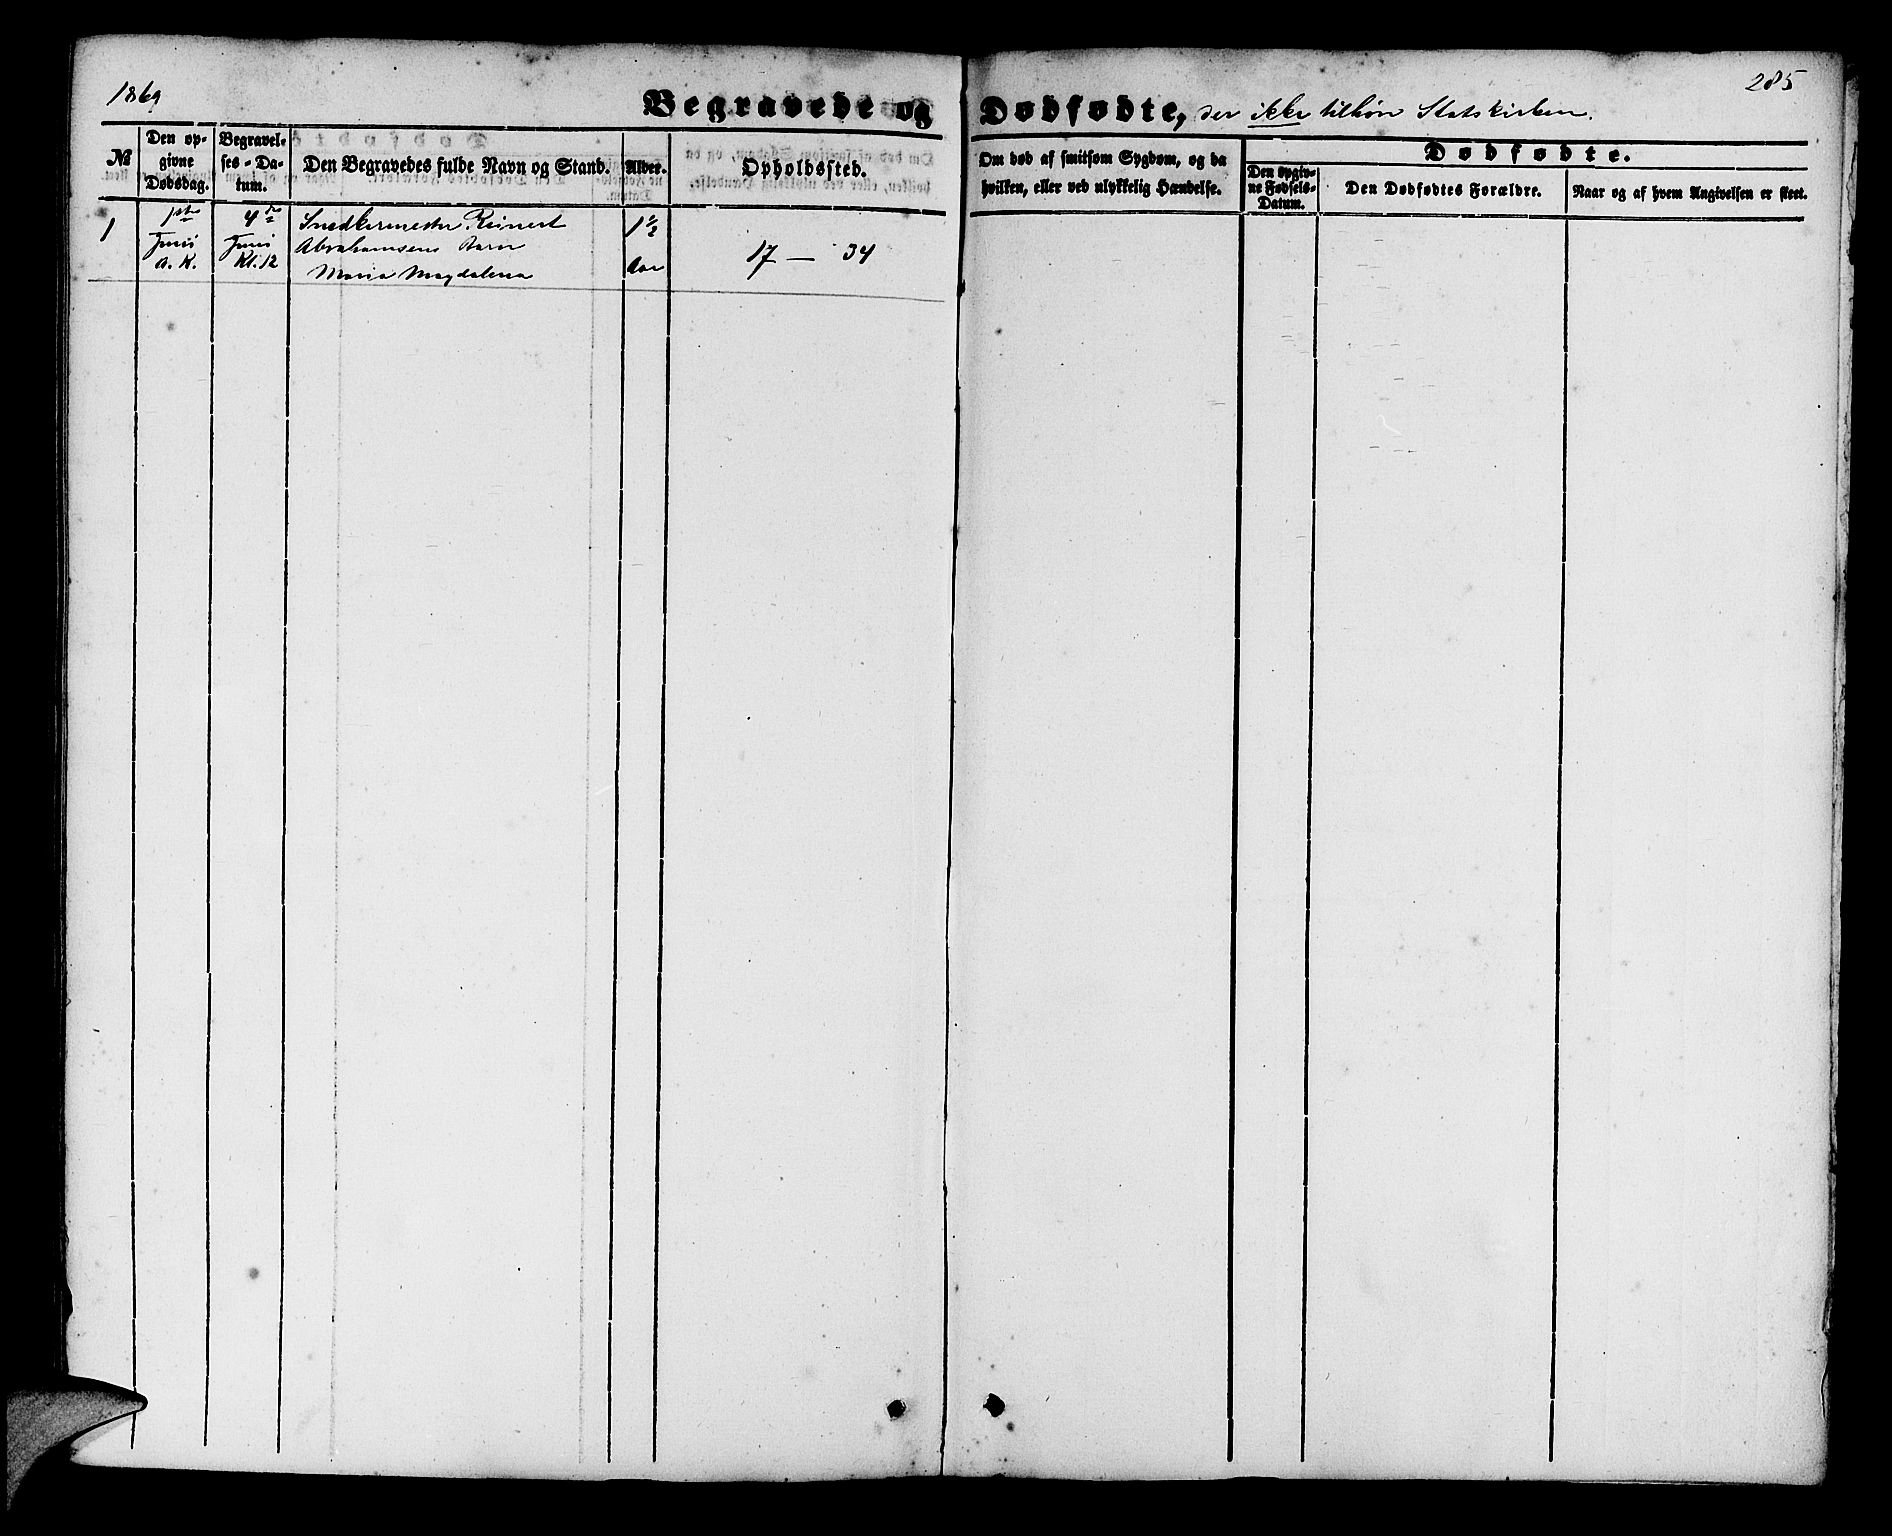 1869
285
Begravede og Dødfødte, der ikke tilhøre Statskirken.
№
Den op-
givne
Dødsdag.
Begravel-
ses-Da-
tum.
Den Begravedes fulde Navn og Stand.
Alder.
Opholdssted.
Om død af smitsom Sygdom, og da
hvilken, eller ved ulykkelig Hændelse.
Dødfødte.
Den opgiv-
ne Fødsels-
Datum.
Den Dødfødtes Forældre.
Naar og af hvem Angivelsen er skeet.
1
1ste
Juni
A. K.
4de
Juni
Kl. 12
Snedkermester Reinert
Abrahamsens Barn
Maria Magdalena
1 ½
Aar
17 — 34